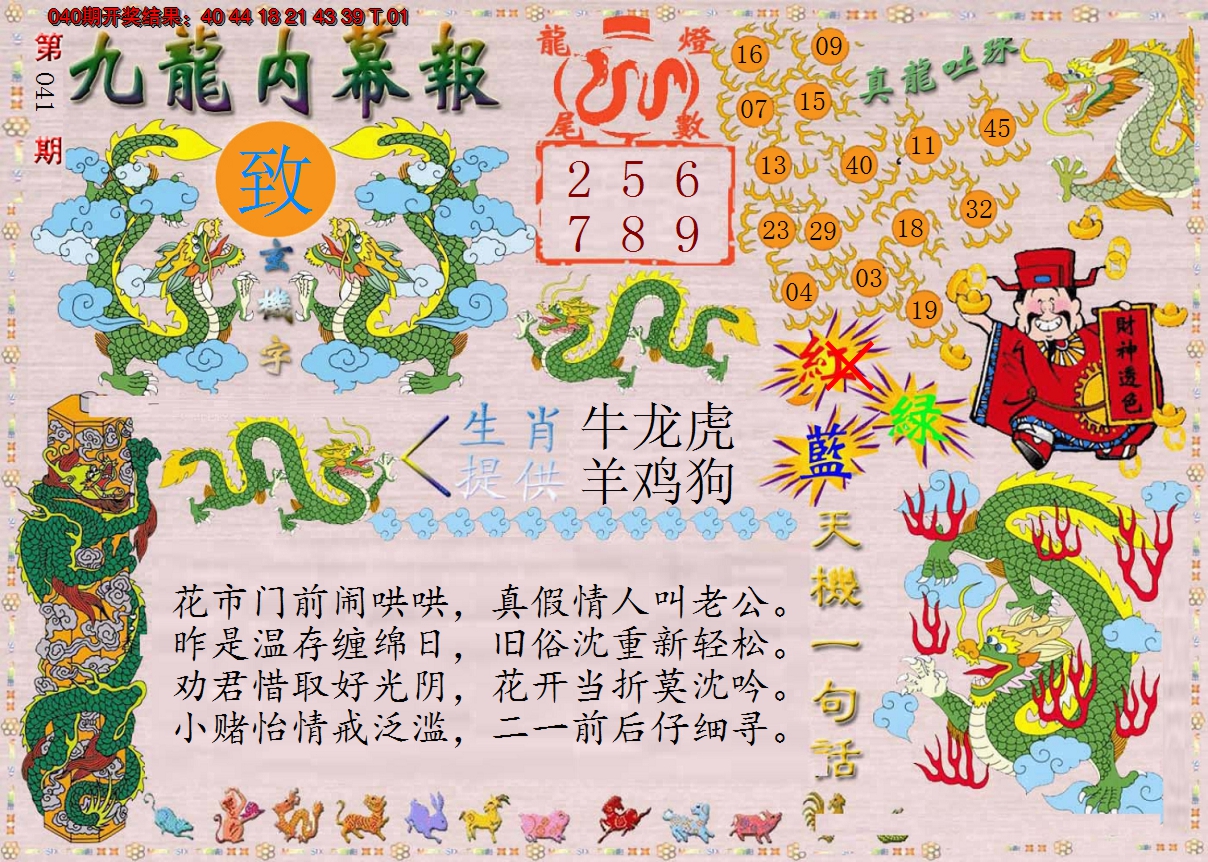 040期开奖结果：40 44 18 21 43 39 T 01
第041期
九龍内幕報
致
玄機字
龍燈
尾數
2 5 6
7 8 9
真龍吐珠
16
09
07
15
13
40
11
45
23
29
18
32
04
03
19
財神透色
紅
綠
藍
生肖 牛龙虎
提供 羊鸡狗
天機一句话
花市门前闹哄哄，真假情人叫老公。
昨是温存缠绵日，旧俗沈重新轻松。
劝君惜取好光阴，花开当折莫沈吟。
小赌怡情戒泛滥，二一前后仔细寻。